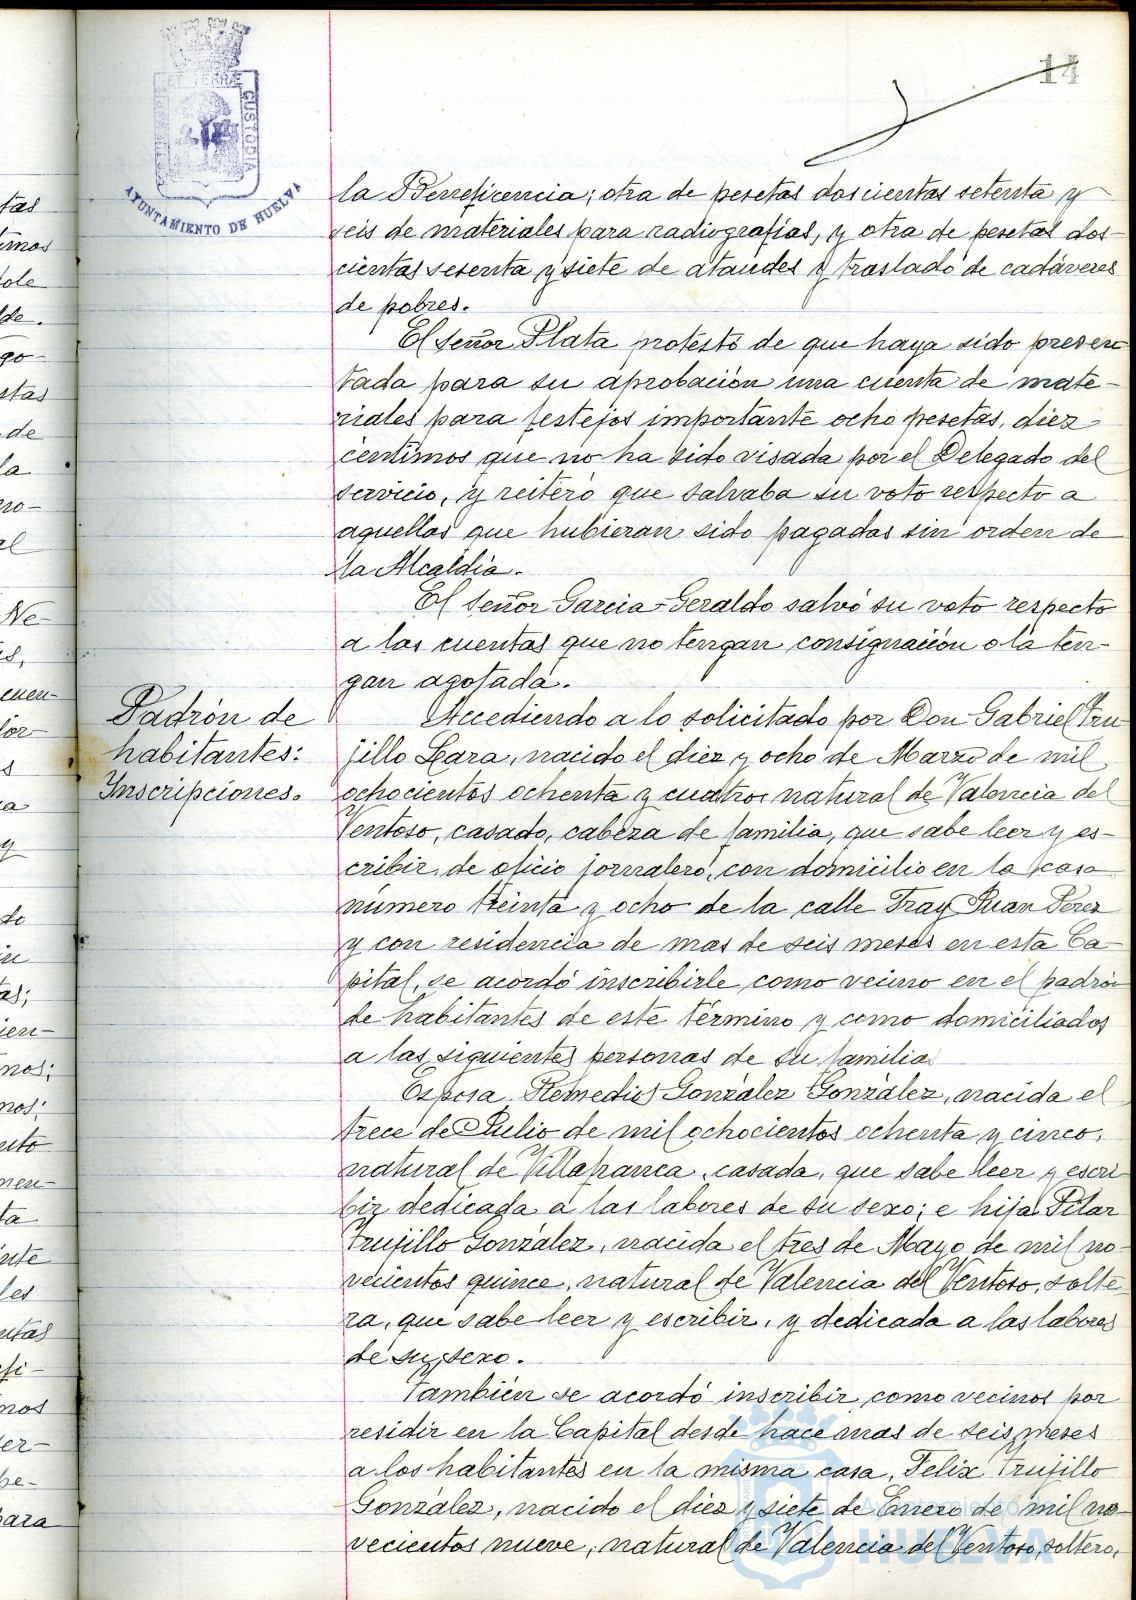 14
ET TERRÆ
CUSTODIA
AYUNTAMIENTO DE HUELVA
la Beneficencia; otra de pesetas doscientas setenta y
seis de materiales para radiografías, y otra de pesetas dos-
cientas sesenta y siete de ataudes y traslado de cadáveres
de pobres.
El Señor Plata protestó de que haya sido presen
tada para su aprobación una cuenta de mate-
riales para festejos importante ocho pesetas, diez
centimos que no ha sido visada por el Delegado del
servicio, y reiteró que salvaba su voto respecto a
aquellas que hubieran sido pagadas sin orden de
la Alcaldía.
El Señor Garcia-Geraldo salvó su voto respecto
a las cuentas que no tengan consignación o la ten-
gan agotada.
Padrón de
habitantes:
Inscripciones.
Accediendo a lo solicitado por Don Gabriel Tru
jillo Lara, nacido el diez y ocho de Marzo de mil
ochocientos ochenta y cuatro, natural de Valencia del
Ventoso, casado, cabeza de familia, que sabe leer y es-
cribir, de oficio jornalero, con domicilio en la casa
número treinta y ocho de la calle Fray Juan Perez
y con residencia de mas de seis meses en esta Ca-
pital, se acordó inscribirle como vecino en el padrón
de habitantes de este término y como domiciliados
a las siguientes personas de su familia
Esposa Remedios González González, nacida el
trece de Julio de mil ochocientos ochenta y cinco,
natural de Villafranca, casada, que sabe leer y escri
bir dedicada a las labores de su sexo; e hija Pilar
Trujillo González, nacida el tres de Mayo de mil no-
vecientos quince, natural de Valencia del Ventoso, solte-
ra, que sabe leer y escribir, y dedicada a las labores
de su sexo.
También se acordó inscribir como vecinos por
residir en la Capital desde hace mas de seis meses
a los habitantes en la misma casa, Felix Trujillo
González, nacido el diez y siete de Enero de mil no-
vecientos nueve, natural de Valencia del Ventoso, soltero,
Ayuntamiento
HUELVA